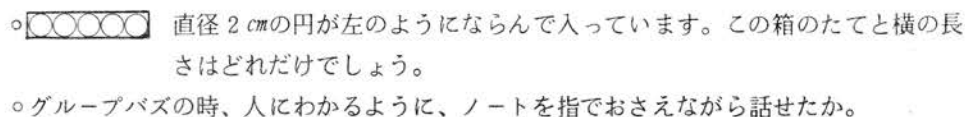 ○ 直径2cmの円が左のようにならんで入っています。この箱のたてと横の長
さはどれだけでしょう。
○グループバズの時、人にわかるように、ノートを指でおさえながら話せたか。